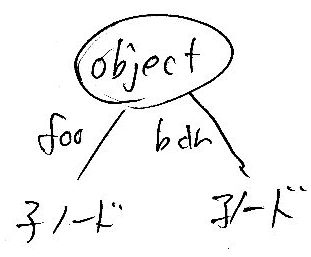 object
foo bar
子ノード 子ノード